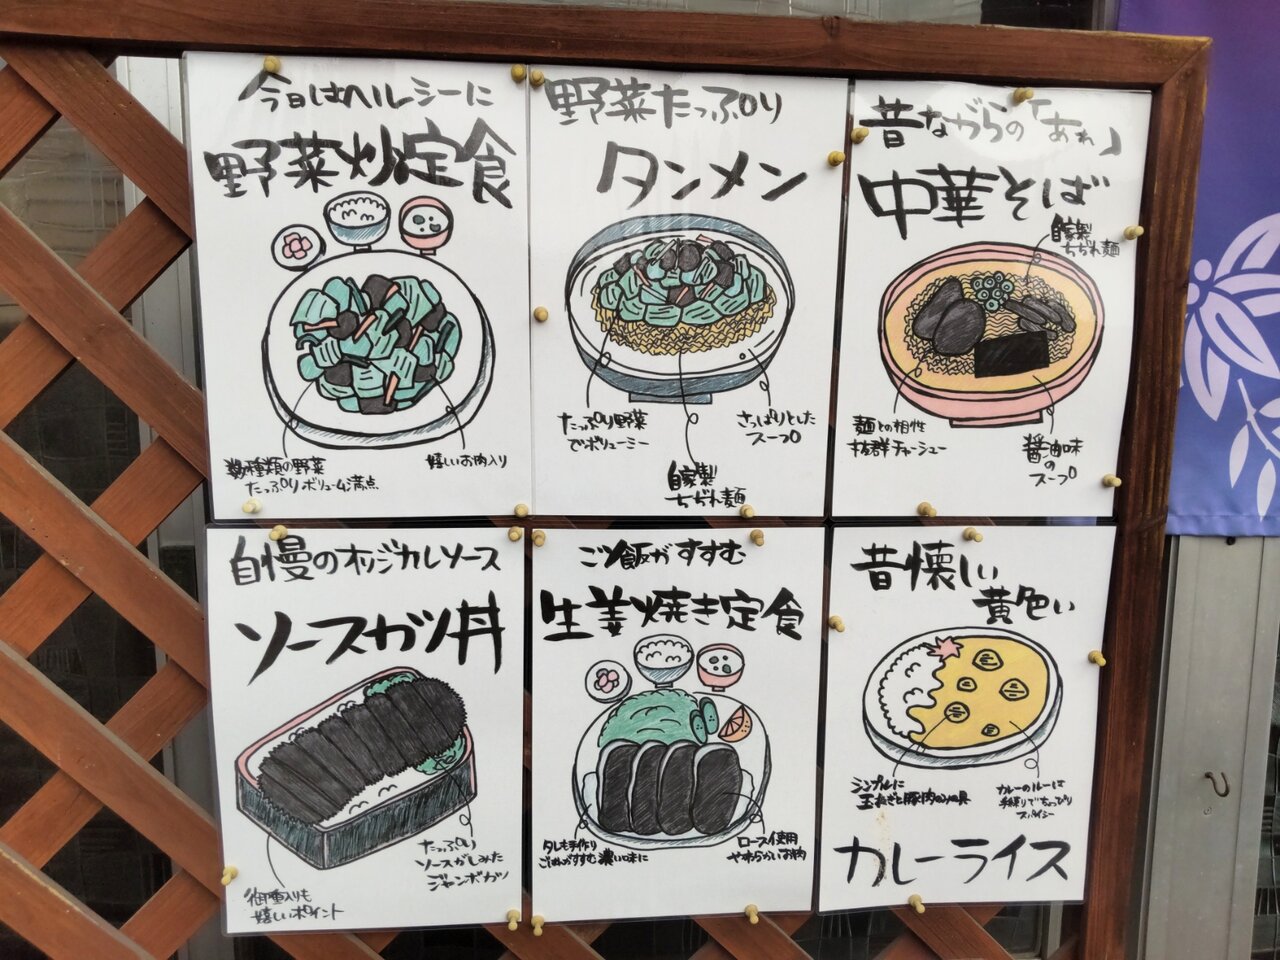 今日はヘルシーに
野菜炒定食
数種類の野菜
たっぷりボリューム満点
嬉しいお肉入り
野菜たっぷり
タンメン
たっぷり野菜
でボリューミー
自家製
ちぢれ麺
さっぱりとした
スープ
昔ながらの「あれ」
中華そば
自家製
ちぢれ麺
麺との相性
抜群チャーシュー
醤油味
の
スープ
自慢のオリジナルソース
ソースカツ丼
たっぷり
ソースがしみた
ジャンボカツ
御重入りも
嬉しいポイント
ご飯がすすむ
生姜焼き定食
タレも手作り
ごはんがすすむ濃い味に
ロース使用
やわらかいお肉
昔懐しい
黄色い
シンプルに
玉ねぎと豚肉のみの具
カレーのルーは
手練りでちょっぴり
スパイシー
カレーライス